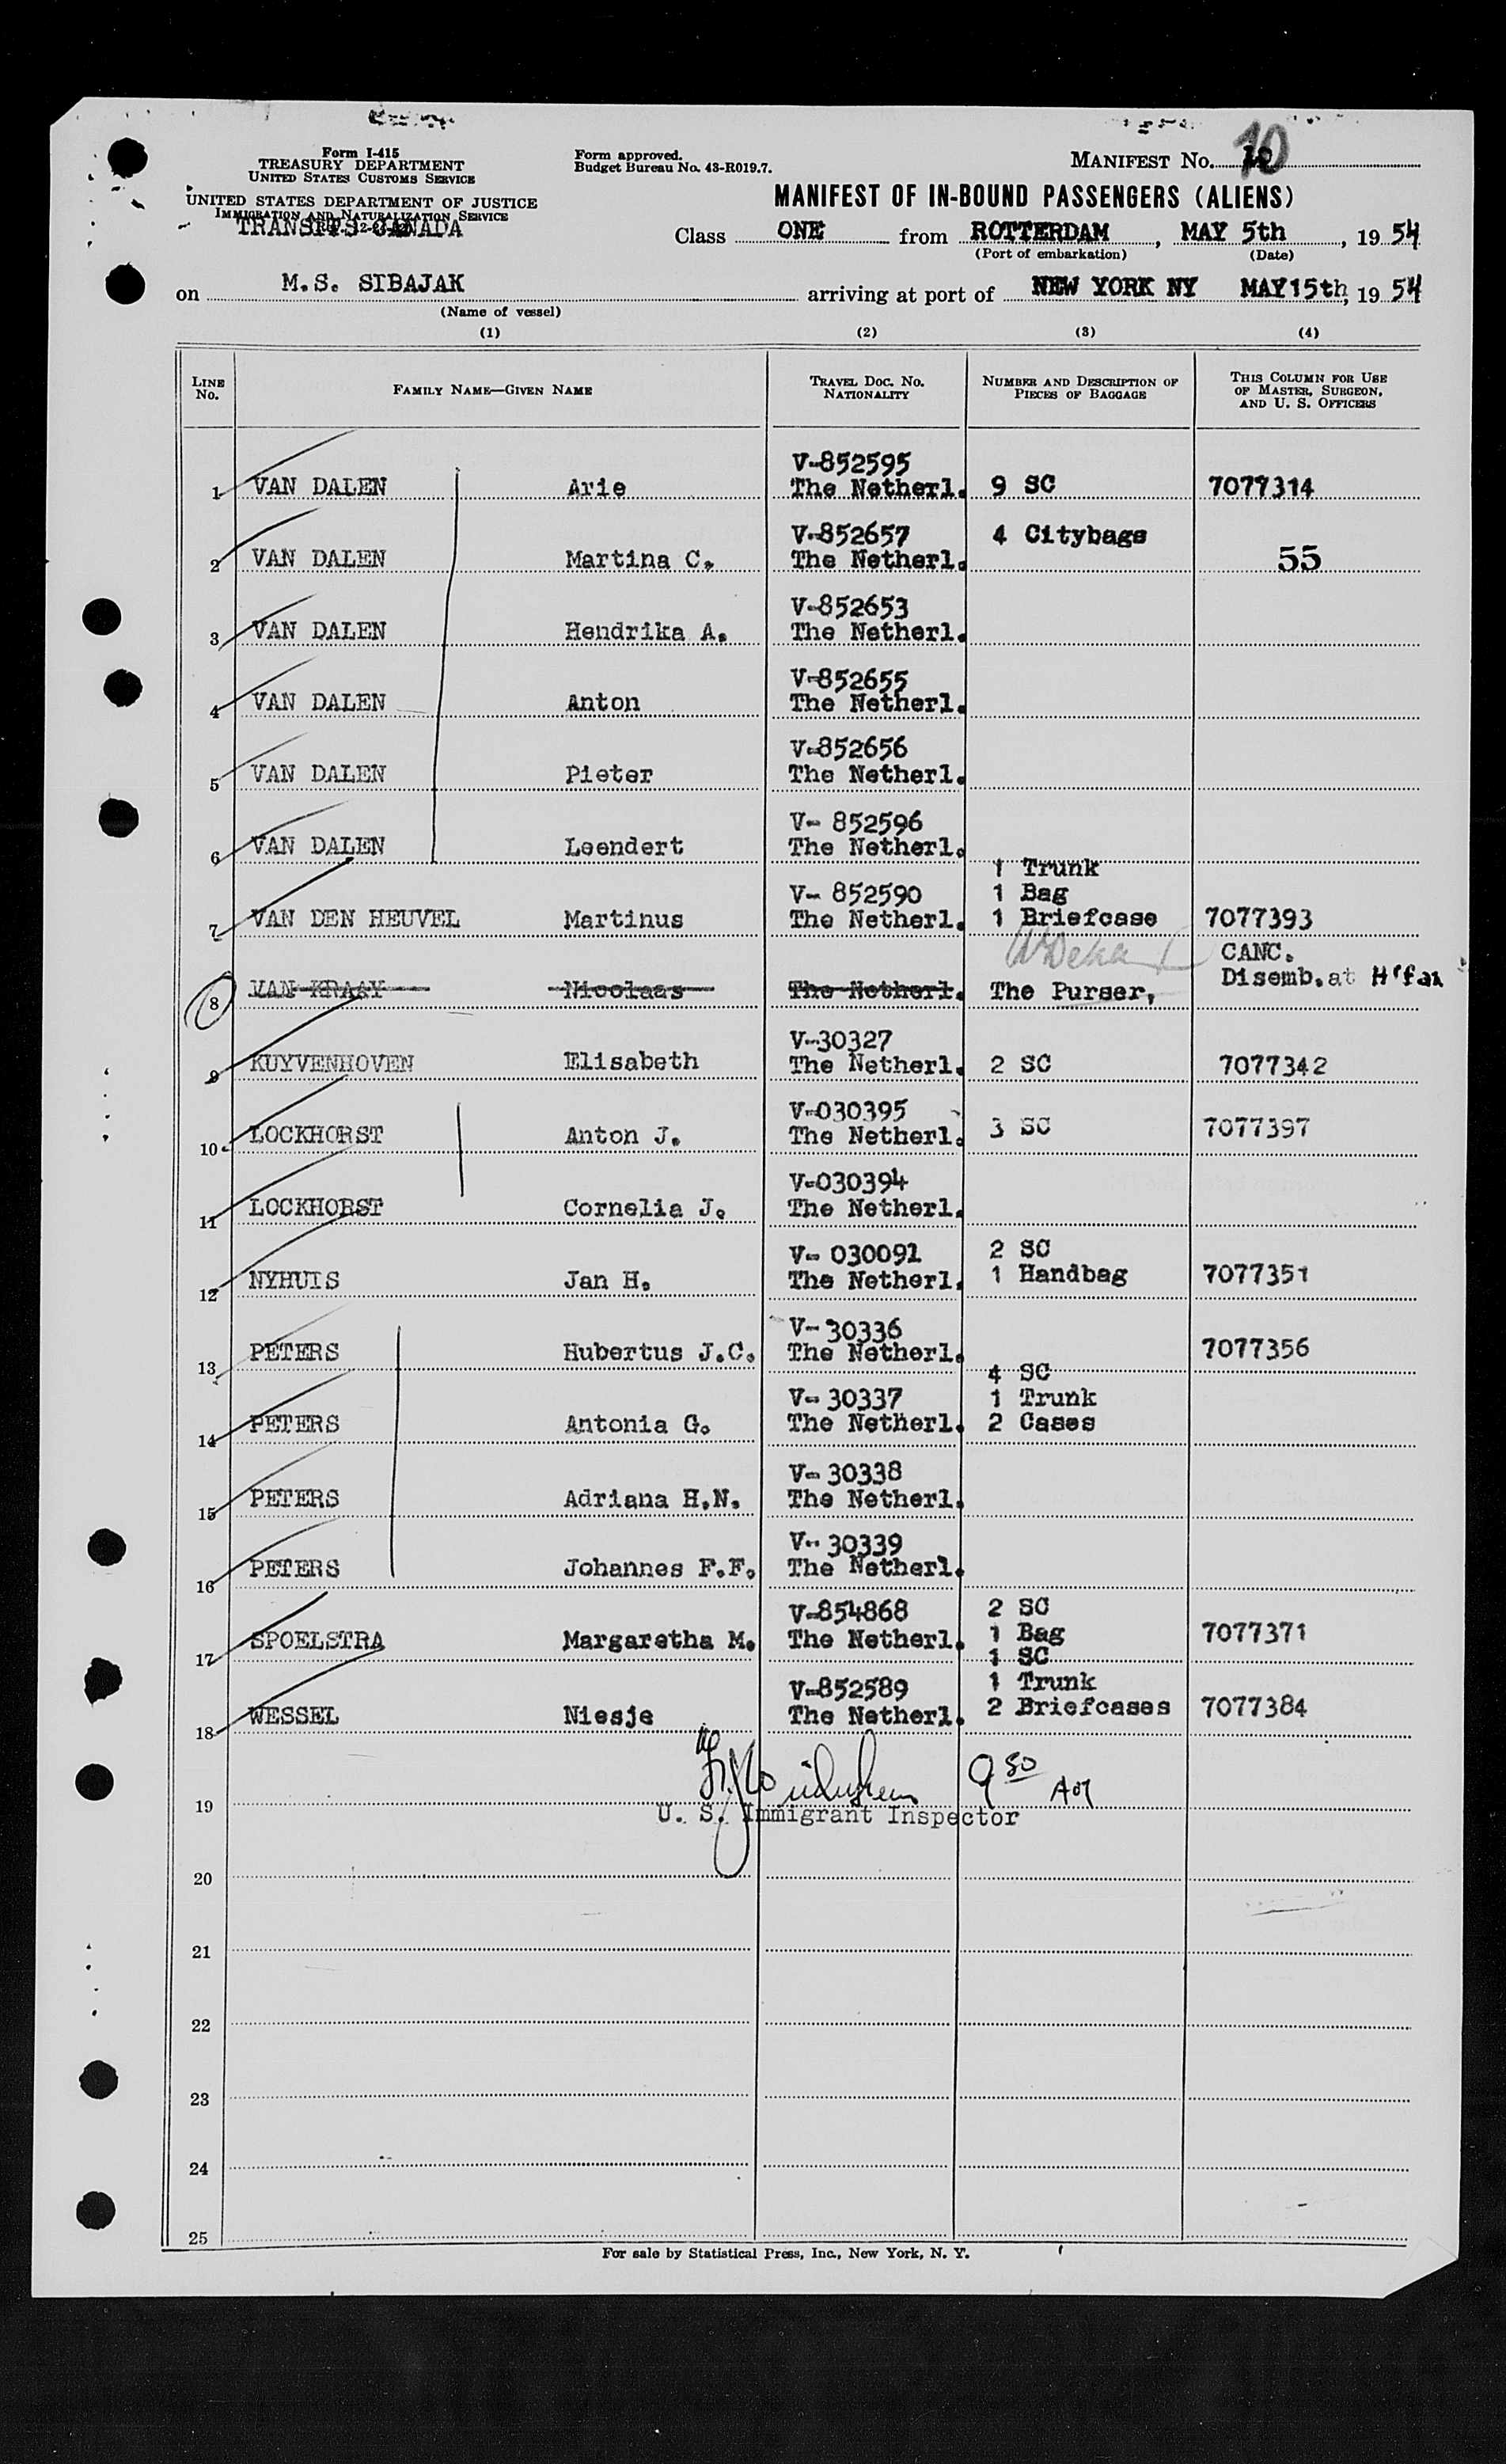 Form I-415
TREASURY DEPARTMENT
UNITED STATES CUSTOMS SERVICE
UNITED STATES DEPARTMENT OF JUSTICE
IMMIGRATION AND NATURALIZATION SERVICE
TRANSITS CANADA
Form approved.
Budget Bureau No. 43-R019.7.
MANIFEST NO. 10
MANIFEST OF IN-BOUND PASSENGERS (ALIENS)
Class ONE from ROTTERDAM, MAY 5th, 1954
(Port of embarkation) (Date)
on M.S. SIBAJAK arriving at port of NEW YORK NY MAY 15th, 1954
(Name of vessel)
(1) (2) (3) (4)
LINE NO. FAMILY NAME—GIVEN NAME TRAVEL DOC. NO. NATIONALITY NUMBER AND DESCRIPTION OF PIECES OF BAGGAGE THIS COLUMN FOR USE OF MASTER, SURGEON, AND U. S. OFFICERS
V-852595
1 VAN DALEN Arie The Netherl. 9 SC 7077314
V-852657 4 Citybags
2 VAN DALEN Martina C. The Netherl. 55
V-852653
3 VAN DALEN Hendrika A. The Netherl.
V-852655
4 VAN DALEN Anton The Netherl.
V-852656
5 VAN DALEN Pieter The Netherl.
V- 852596
6 VAN DALEN Leendert The Netherl.
1 Trunk
V- 852590 1 Bag
7 VAN DEN HEUVEL Martinus The Netherl. 1 Briefcase 7077393
CANC.
Disemb. at H'fax
8 VAN KRAAY Nicolaas The Netherl. The Purser,
V-30327
9 KUYVENHOVEN Elisabeth The Netherl. 2 SC 7077342
V-030395
10 LOCKHORST Anton J. The Netherl. 3 SC 7077397
V-030394
11 LOCKHORST Cornelia J. The Netherl.
V- 030091 2 SC
12 NYHUIS Jan H. The Netherl. 1 Handbag 7077351
V- 30336
13 PETERS Hubertus J.C. The Netherl. 7077356
4 SC
V- 30337 1 Trunk
14 PETERS Antonia G. The Netherl. 2 Cases
V- 30338
15 PETERS Adriana H.N. The Netherl.
V- 30339
16 PETERS Johannes F.F. The Netherl.
V-854868 2 SC
17 SPOELSTRA Margaretha M. The Netherl. 1 Bag 7077371
1 SC
V-852589 1 Trunk
18 WESSEL Niesje The Netherl. 2 Briefcases 7077384
9 50
19
U. S. Immigrant Inspector
20
21
22
23
24
25
For sale by Statistical Press, Inc., New York, N. Y.